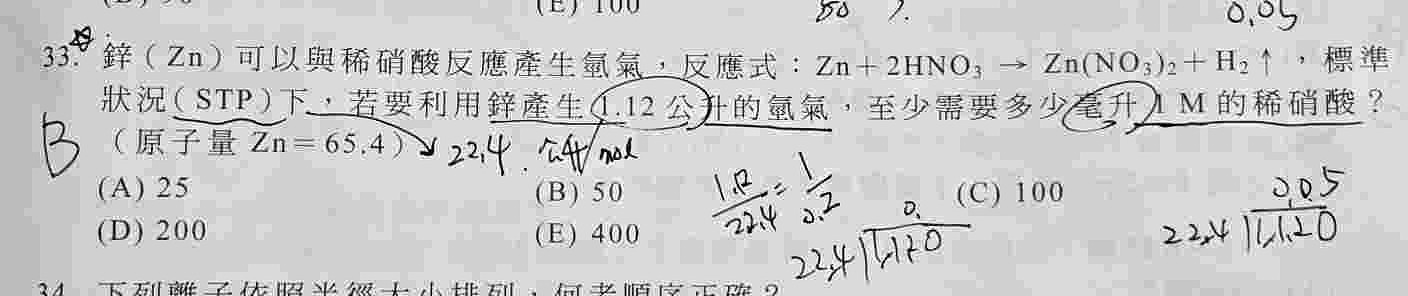 (E) 100
0.05
33. 鋅（Zn）可以與稀硝酸反應產生氫氣，反應式：Zn＋2HNO₃ → Zn(NO₃)₂＋H₂↑，標準
狀況（STP）下，若要利用鋅產生1.12公升的氫氣，至少需要多少毫升1 M的稀硝酸？
B
（原子量 Zn＝65.4）
22.4 公升/mol
(A) 25
(B) 50
(C) 100
(D) 200
(E) 400
1.12/22.4
0.05
22.4 1.120
34. 下列離子依照半徑大小排列，何者順序正確？